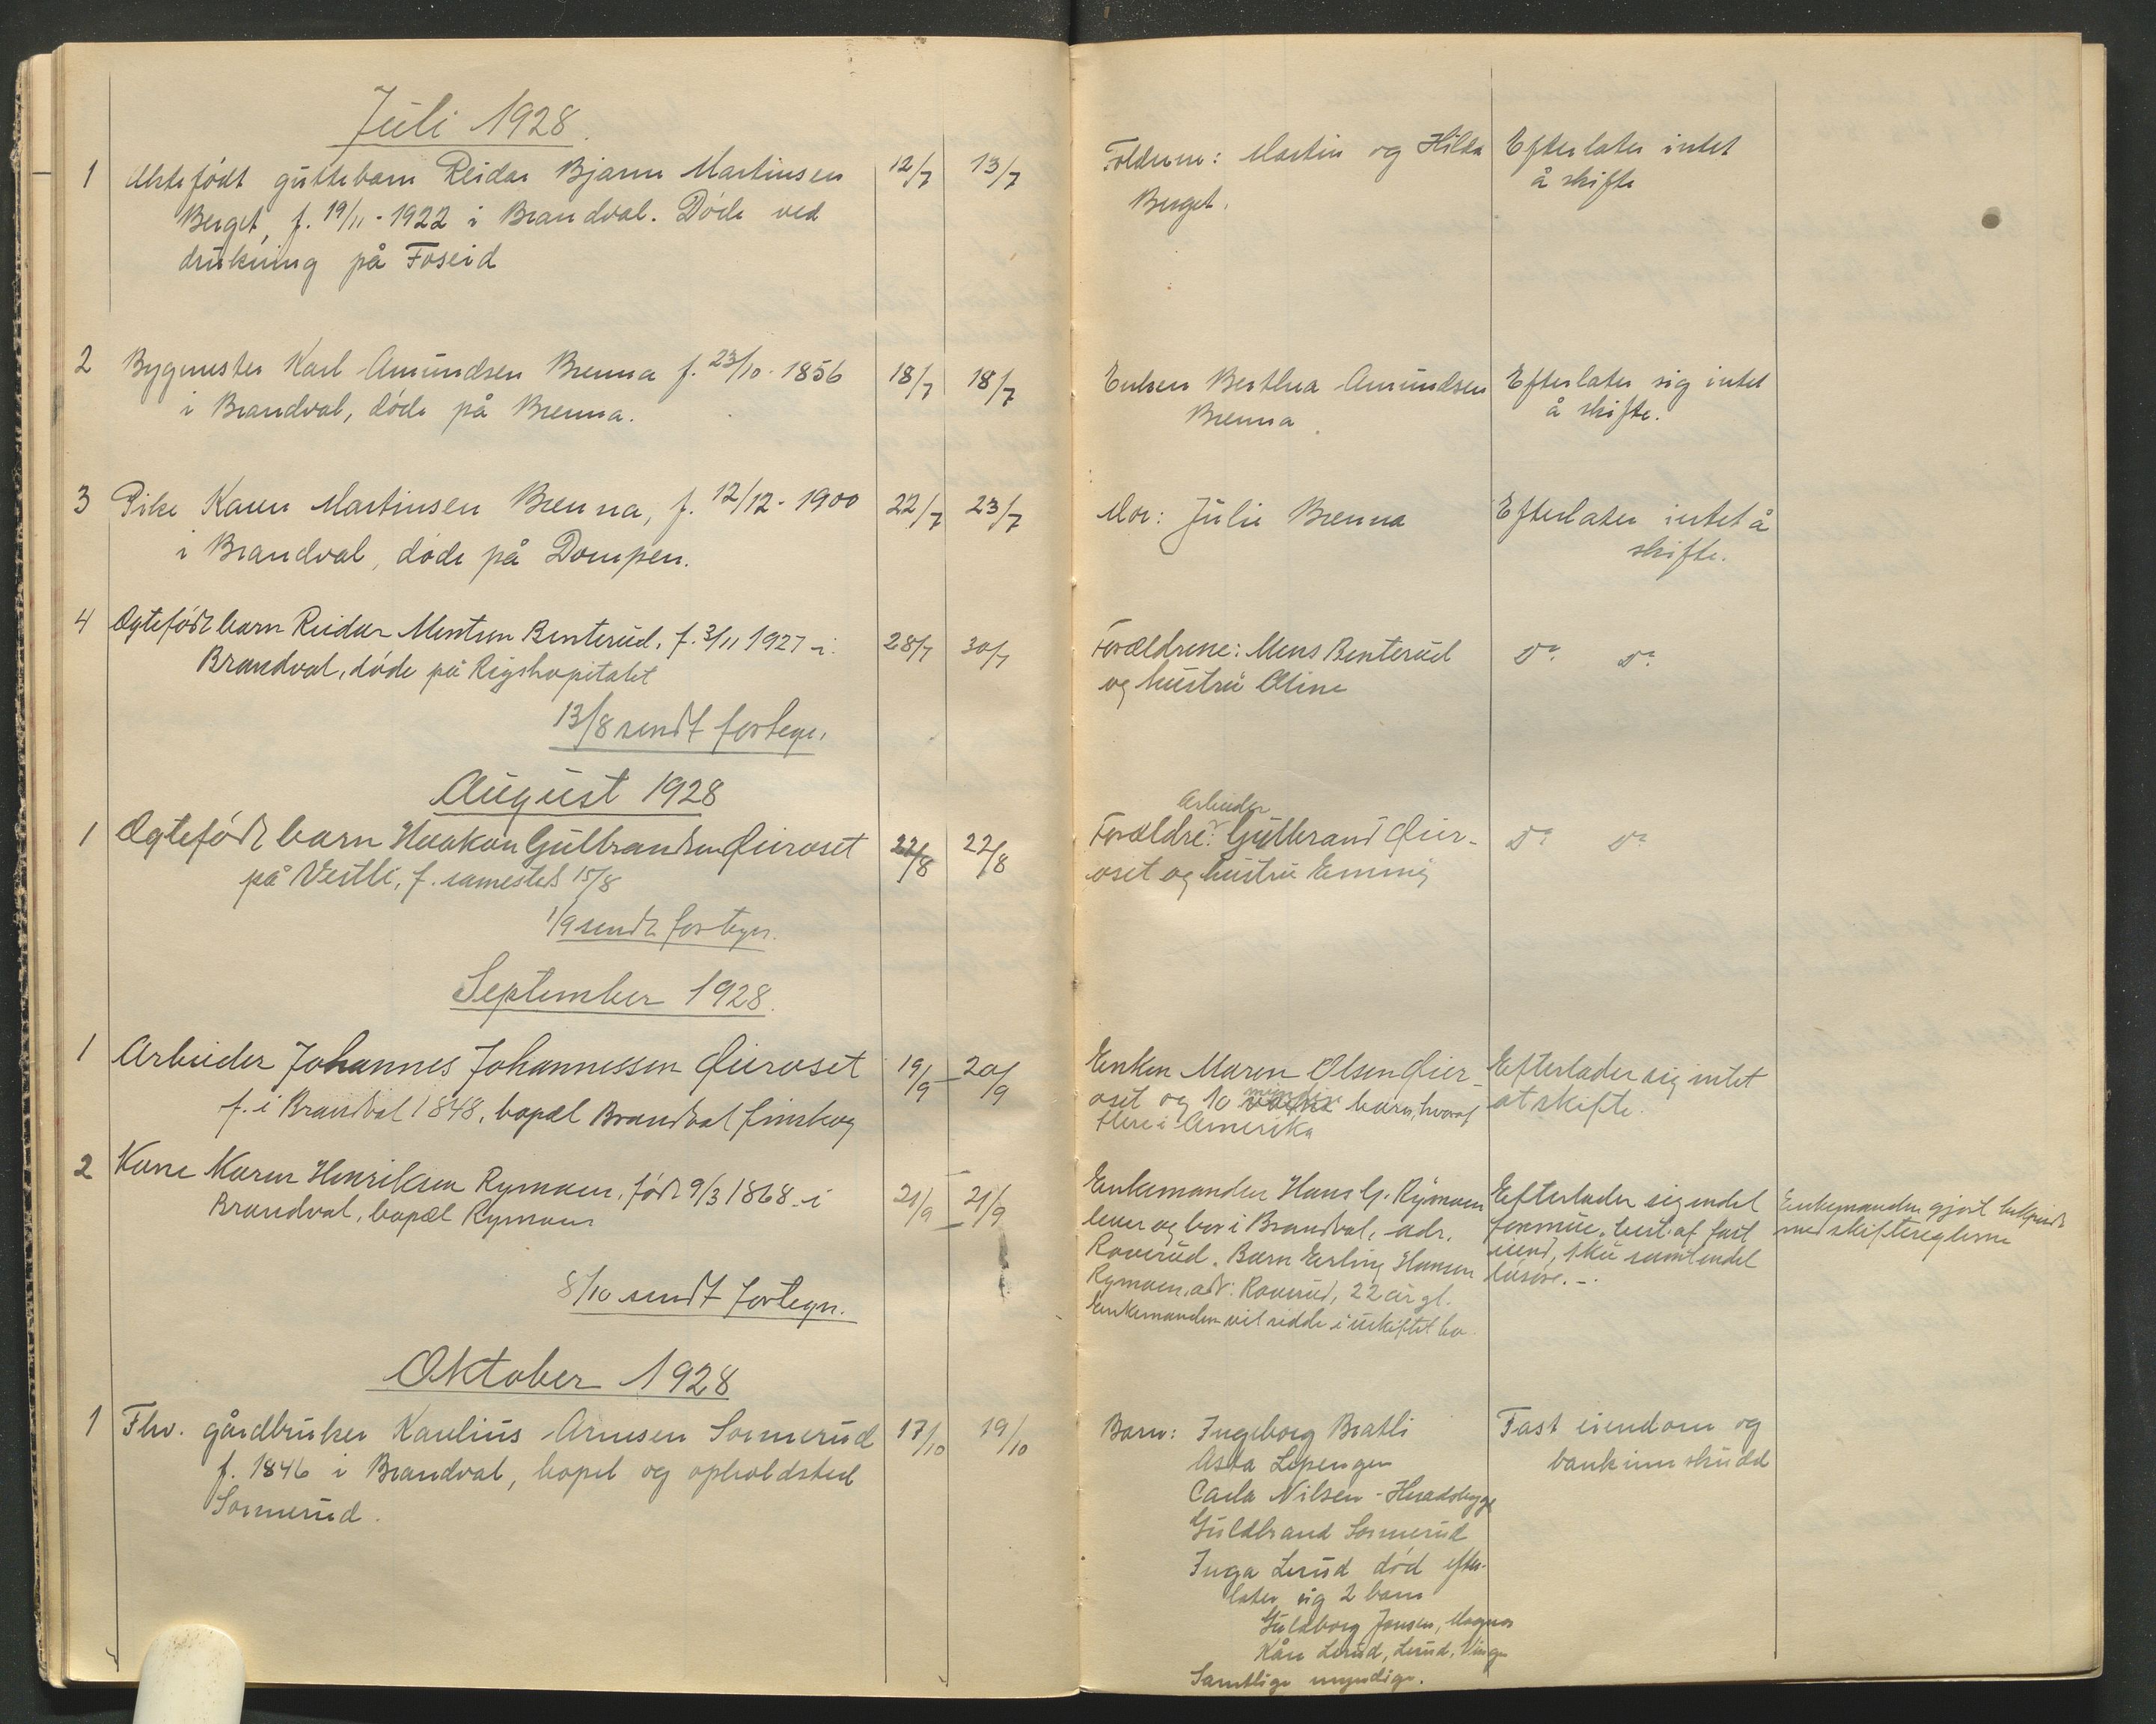 Juli 1928.
1 Ektefödt guttebarn Reidar Bjarne Martinsen 12/7 13/7
Berget, f. 19/11 - 1922 i Brandval. Döde ved
drukning på Foseid
2 Bygmester Karl Amundsen Brenna f. 23/10 - 1856 18/7 18/7
i Brandval, döde på Brenna.
3 Pike Karen Martinsen Brenna, f. 12/12 - 1900 22/7 23/7
i Brandval, döde på Dompen.
4 Ægtefödt barn Reidar Mentsen Benterud, f. 3/11 1927 i 28/7 30/7
Brandval, döde på Rigshopitalet
13/8 sendt fortegn.
August 1928
1 Ægtefödt barn Haakon Gulbrandsen Öieroset 22/8 22/8
på Vestli, f. samesteds 15/8
1/9 sendt fortegn.
September 1928.
1 Arbeider Johannes Johannessen Öieroset 19/9 - 20/9
f. i Brandval 1848, bopæl Brandval finskog
2 Kone Maren Henriksen Rymoen, född 9/3 1868 i 21/9 - 21/9
Brandval, bopæl Rymoen
8/10 sendt fortegn.
Oktober 1928
1 Fhv. gårdbruker Karelius Arnesen Sormerud 17/10 19/10
f. 1846 i Brandval, bopel og opholdsted
Sormerud.
Foldrene: Martin og Hilda
Berget.
Efterlater intet
å skifte
Enken Berthea Amundsen
Brenna
Efterlater sig intet
å skifte.
Mor: Julie Brenna
Efterlater intet å
skifte.
Forældrene: Mens Benterud
og hustru Oline
Do Do
Arbeider
Forældre: Gulbrand Öier-
oset og hustru Emmy
Do Do
Enken Maren Olsen Öier-
oset og 10 myndige barn, hvoraf
flere i Amerika
Efterlader sig intet
at skifte.
Enkemanden Hans G. Rymoen
lever og bor i Brandval, adr.
Roverud. Barn Erling Hansen
Rymoen, adr: Roverud, 22 år gl.
Enkemanden vil sidde i uskiftet bo.
Efterlader sig endel
formue, best. af fast
eiend, 1 ku samt endel
lösöre. -
Enkemanden gjort bekjendt
med skiftereglerne
Barn: Ingeborg Bratli
Asta Lepengen
Carla Nilsen -
Guldbrand Sormerud
Inga Lerud död efter-
later sig 2 barn
Guldborg Jensen, Magnor
Kåre Lerud, Lerud, Vinger
Samtlige myndige.
Fast eiendom og
bankinnskudd